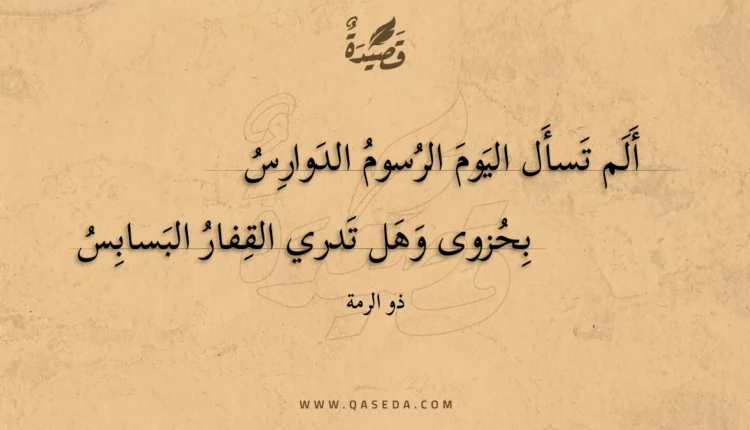 قَصِيْدَةٌ
أَلَم تَسأَل اليَومَ الرُسومُ الدَوارِسُ
بِحُزوى وَهَل تَدري القِفارُ البَسابِسُ
ذو الرمة
WWW.QASEDA.COM